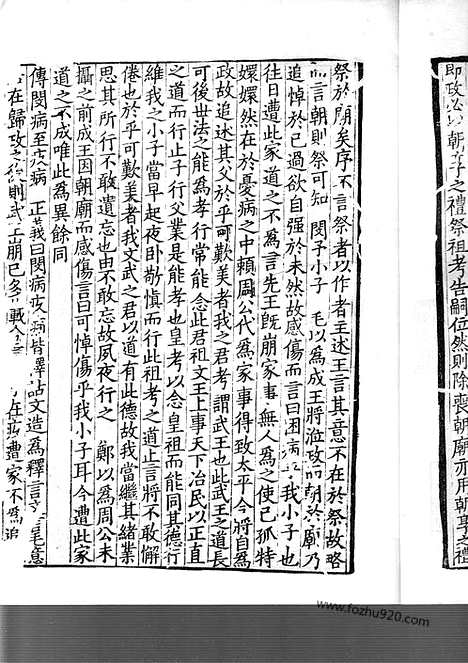 即政必以朝享之禮祭祖考告嗣位然則除喪朝廟亦用朝享之禮
祭於廟矣序不言祭者以作者主述王言其意不在於祭故略
而言朝則祭可知 閔予小子 毛以為成王將涖政而朝於廟乃
追悼於己過欲自强於未然故感傷而言曰困病乎我小子也
往日遭此家道之不為言先王既崩家事無人為之使己孤特
嬛嬛然在於憂病之中賴周公代為家事得致太平今將自為
政故追述其父於乎可歎美者我之君考謂武王也此武王之道長
可後世法之能為孝行常能念此君祖文王上事天下治民以正直
之道而行止子行父業是能孝也皇考以念皇祖而能同其德行
維我之小子當早起夜卧敬慎而行此祖考之道止言將不敢懈
倦也於乎可歎美者我文武之君以道功有此德故我當繼其緒業
思其所行不敢遺忘也由不敢忘故夙夜行之 鄭以為周公未
攝之前成王因朝廟而感傷言曰可悼傷乎我小子耳今遭此家
道之不成唯此為異餘同
傳閔病至疚病 正義曰閔病疚病皆釋詁文造為釋言文毛意
在歸政之後則武王崩已多載
在疚遭家不為追
www.fozhu920.com